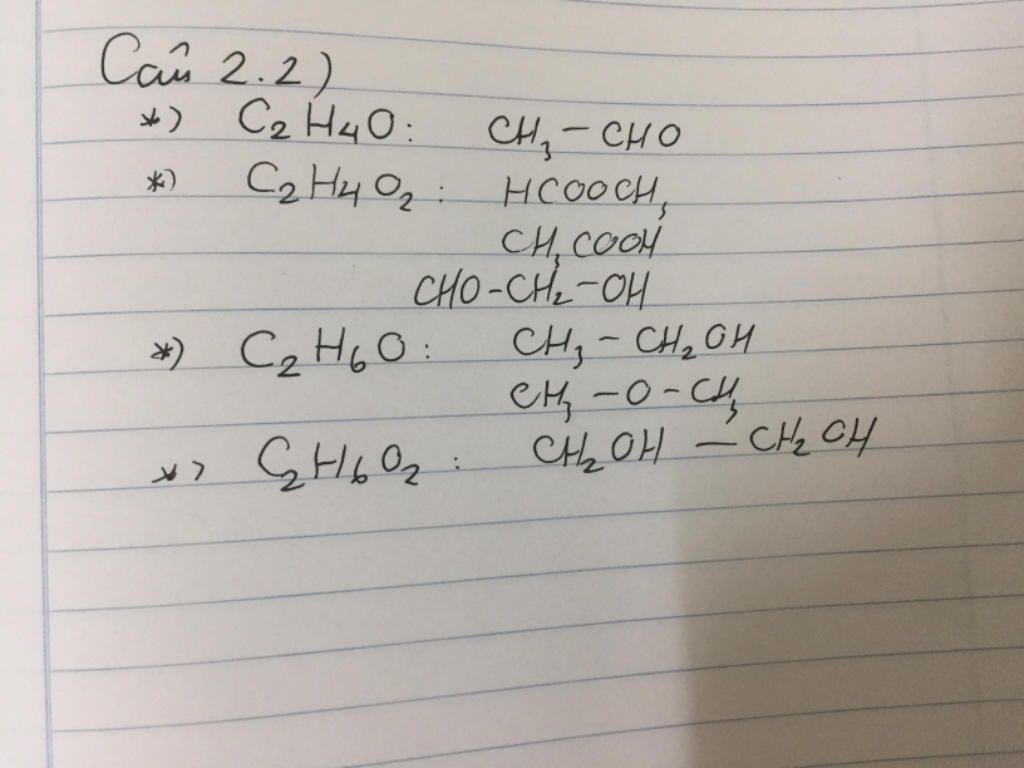 Câu 2.2)
*) C₂H₄O: CH₃ – CHO
*) C₂H₄O₂: HCOOCH₃
CH₃COOH
CHO-CH₂-OH
*) C₂H₆O: CH₃ – CH₂OH
CH₃ – O – CH₃
*) C₂H₆O₂: CH₂OH – CH₂OH